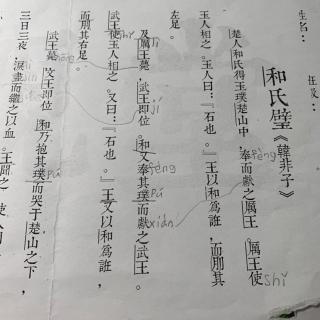 姓名：
和氏璧《韓非子》
楚人和氏得玉璞楚山中，奉而獻之厲王。厲王使
fèng
shǐ
玉人相之。玉人曰：『石也。』王以和為誑，而刖其
左足。
及厲王薨，武王即位。和又奉其璞而獻之武王。
jí
fèng
pú
xiàn
武王使玉人相之。又曰：『石也。』王又以和為誑，
而刖其右足。
武王薨，文王即位。和乃抱其璞而哭于楚山之下，
pú
三日三夜，淚盡而繼之以血。王聞之，使